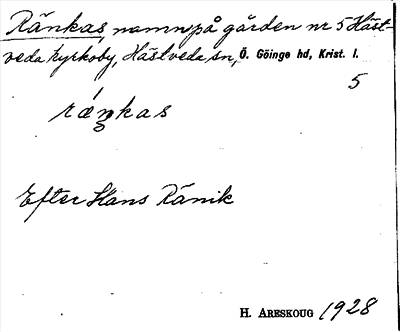 Ränkas, namn på gården nr 5 Häst-
veda kyrkoby, Hästveda sn, Ö. Göinge hd, Krist. l.
5
rǽŋkas
Efter Hans Ränik
H. ARESKOUG 1928